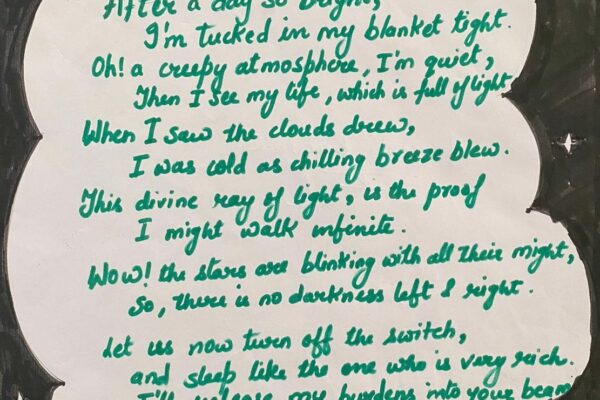 After a day so bright,
I'm tucked in my blanket tight.
Oh! a creepy atmosphere, I'm quiet,
Then I see my life, which is full of light
When I saw the clouds drew,
I was cold as chilling breeze blew.
This divine ray of light, is the proof
I might walk infinite.
Wow! the stars are blinking with all their might,
So, there is no darkness left & right.
Let us now turn off the switch,
and sleep like the one who is very rich.
I'll release my burdens into your beam